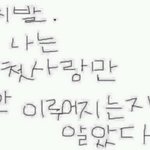 지발.
나는
첫사랑만
안 이루어지는지
알았다